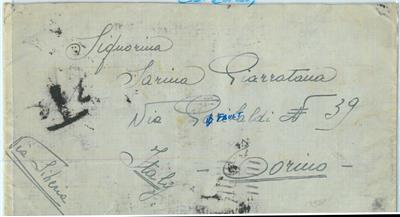 Signorina
Sarina Giarratana
Via Garibaldi # 39
Torino
Italy
Via Siberia